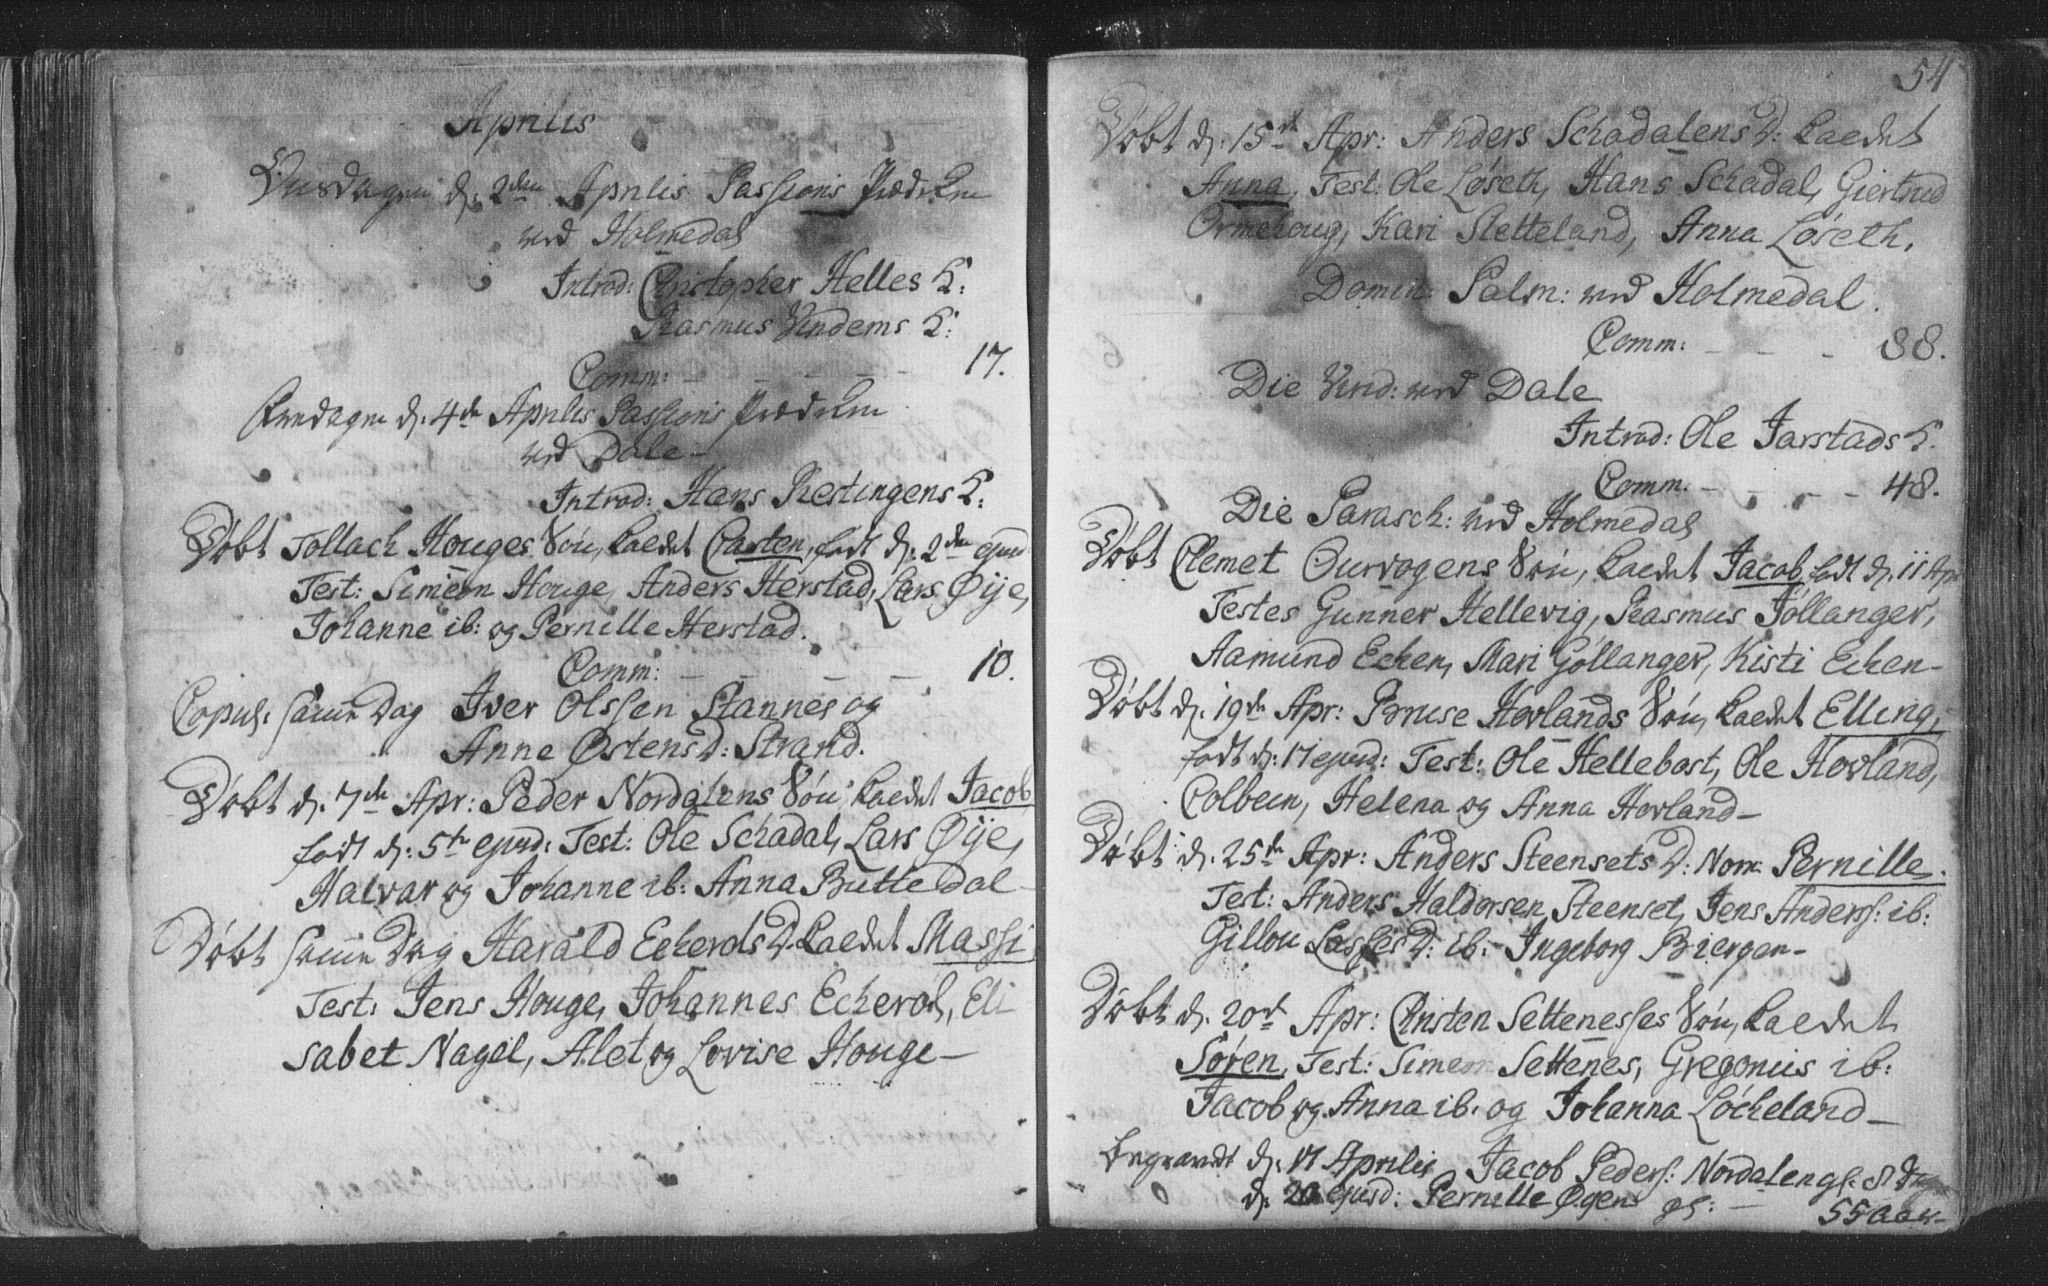 Aprilis
Onsdagen d. 2den Aprilis Passions Prædiken
ved Holmedal
Introd: Christopher Helles K:
Rasmus Vindems K:
Comm: - - - - - 17.
Fredagen d. 4de Aprilis Passions Prædiken
ved Dale -
Introd: Hans Restingens K:
Døbt Tollach Houges Søn, kaldet Casten, født d. 2den ejusd:
Test: Simeon Houge, Anders Herstad, Lars Øije,
Johanne ib: og Pernille Herstad.
Comm: - - - - 10.
Copul. samme Dag Iver Olssen Stannes og
Anne Østens D: Strand.
Døbt d. 7de Apr: Peder Nordalens Søn, kaldet Jacob
født d. 5te ejusd: Test: Ole Schadal, Lars Øije,
Halvar og Johanne ib: Anna Buttedal -
Døbt samme Dag Harald Echerols D. kaldet Massi
Test: Jens Houge, Johannes Echerol, Eli
sabet Nagel, Alet og Lovise Houge -
54
Døbt d. 15de Apr: Anders Schadalens D: kaldet
Anna, Test: Ole Løseth, Hans Schadal, Giertrud
Ormehoug, Kari Sletteland, Anna Løseth.
Domin: Palm: ved Holmedal.
Comm: - - - 88.
Die Vird: ved Dale
Introd: Ole Jarstads K.
Comm. - - - - 48.
Die Parasch: ved Holmedal
Døbt Clemet Ourvogens Søn, kaldet Jacob, født d. 11 Apr
Testes Gunner Hellevig, Rasmus Jøllanger,
Aamund Echen, Mari Gøllanger, Kisti Echen -
Døbt d. 19de Apr: Bruse Hovlands Søn, kaldet Elling,
født d: 17 ejusd: Test: Ole Hellebost, Ole Hovland,
Colbein, Helena og Anna Hovland -
Døbt d. 25de Apr: Anders Steensets D: Nom: Pernille.
Test: Anders Haldorsen Steenset, Jens Anders: ib:
Gillou Lasses D: ib: Ingeborg Biergen -
Døbt d. 20de Apr: Christen Settenesses Søn, kaldet
Søren, Test: Simeon Settenes, Gregorius ib:
Jacob og Anna ib: og Johanna Løcheland -
Begravet d. 17 Aprilis Jacob Peders: Nordalen
d. 20 ejusd: Pernille Øgens - 55 aar -